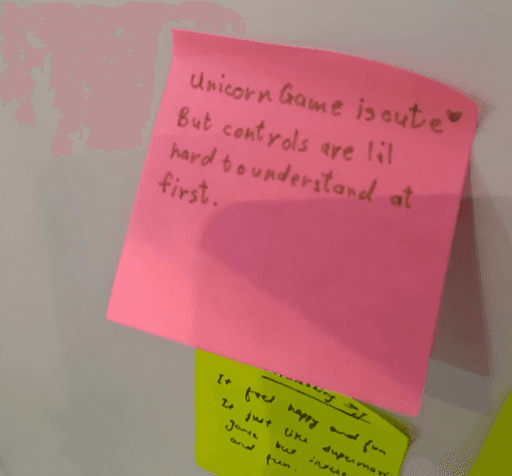 Unicorn Game is cute ♥
But controls are lil
hard to understand at
first.
It feel happy and fun
It just like supermari
game but
and fun.